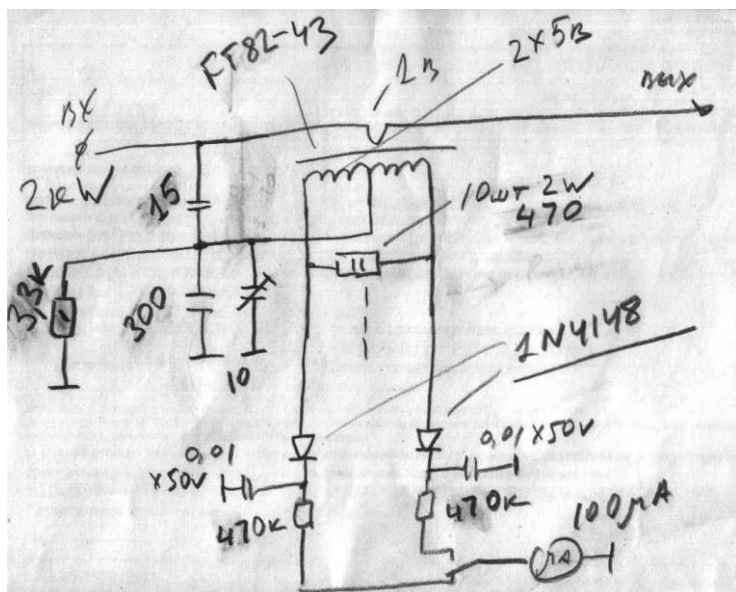 FT82-43
1В
2х5В
вх
вых
2кW
15
10шт 2W
470
3,3к
300
10
1N4148
0,01
х50V
0,01 х50V
470к
470к
100μА
μА